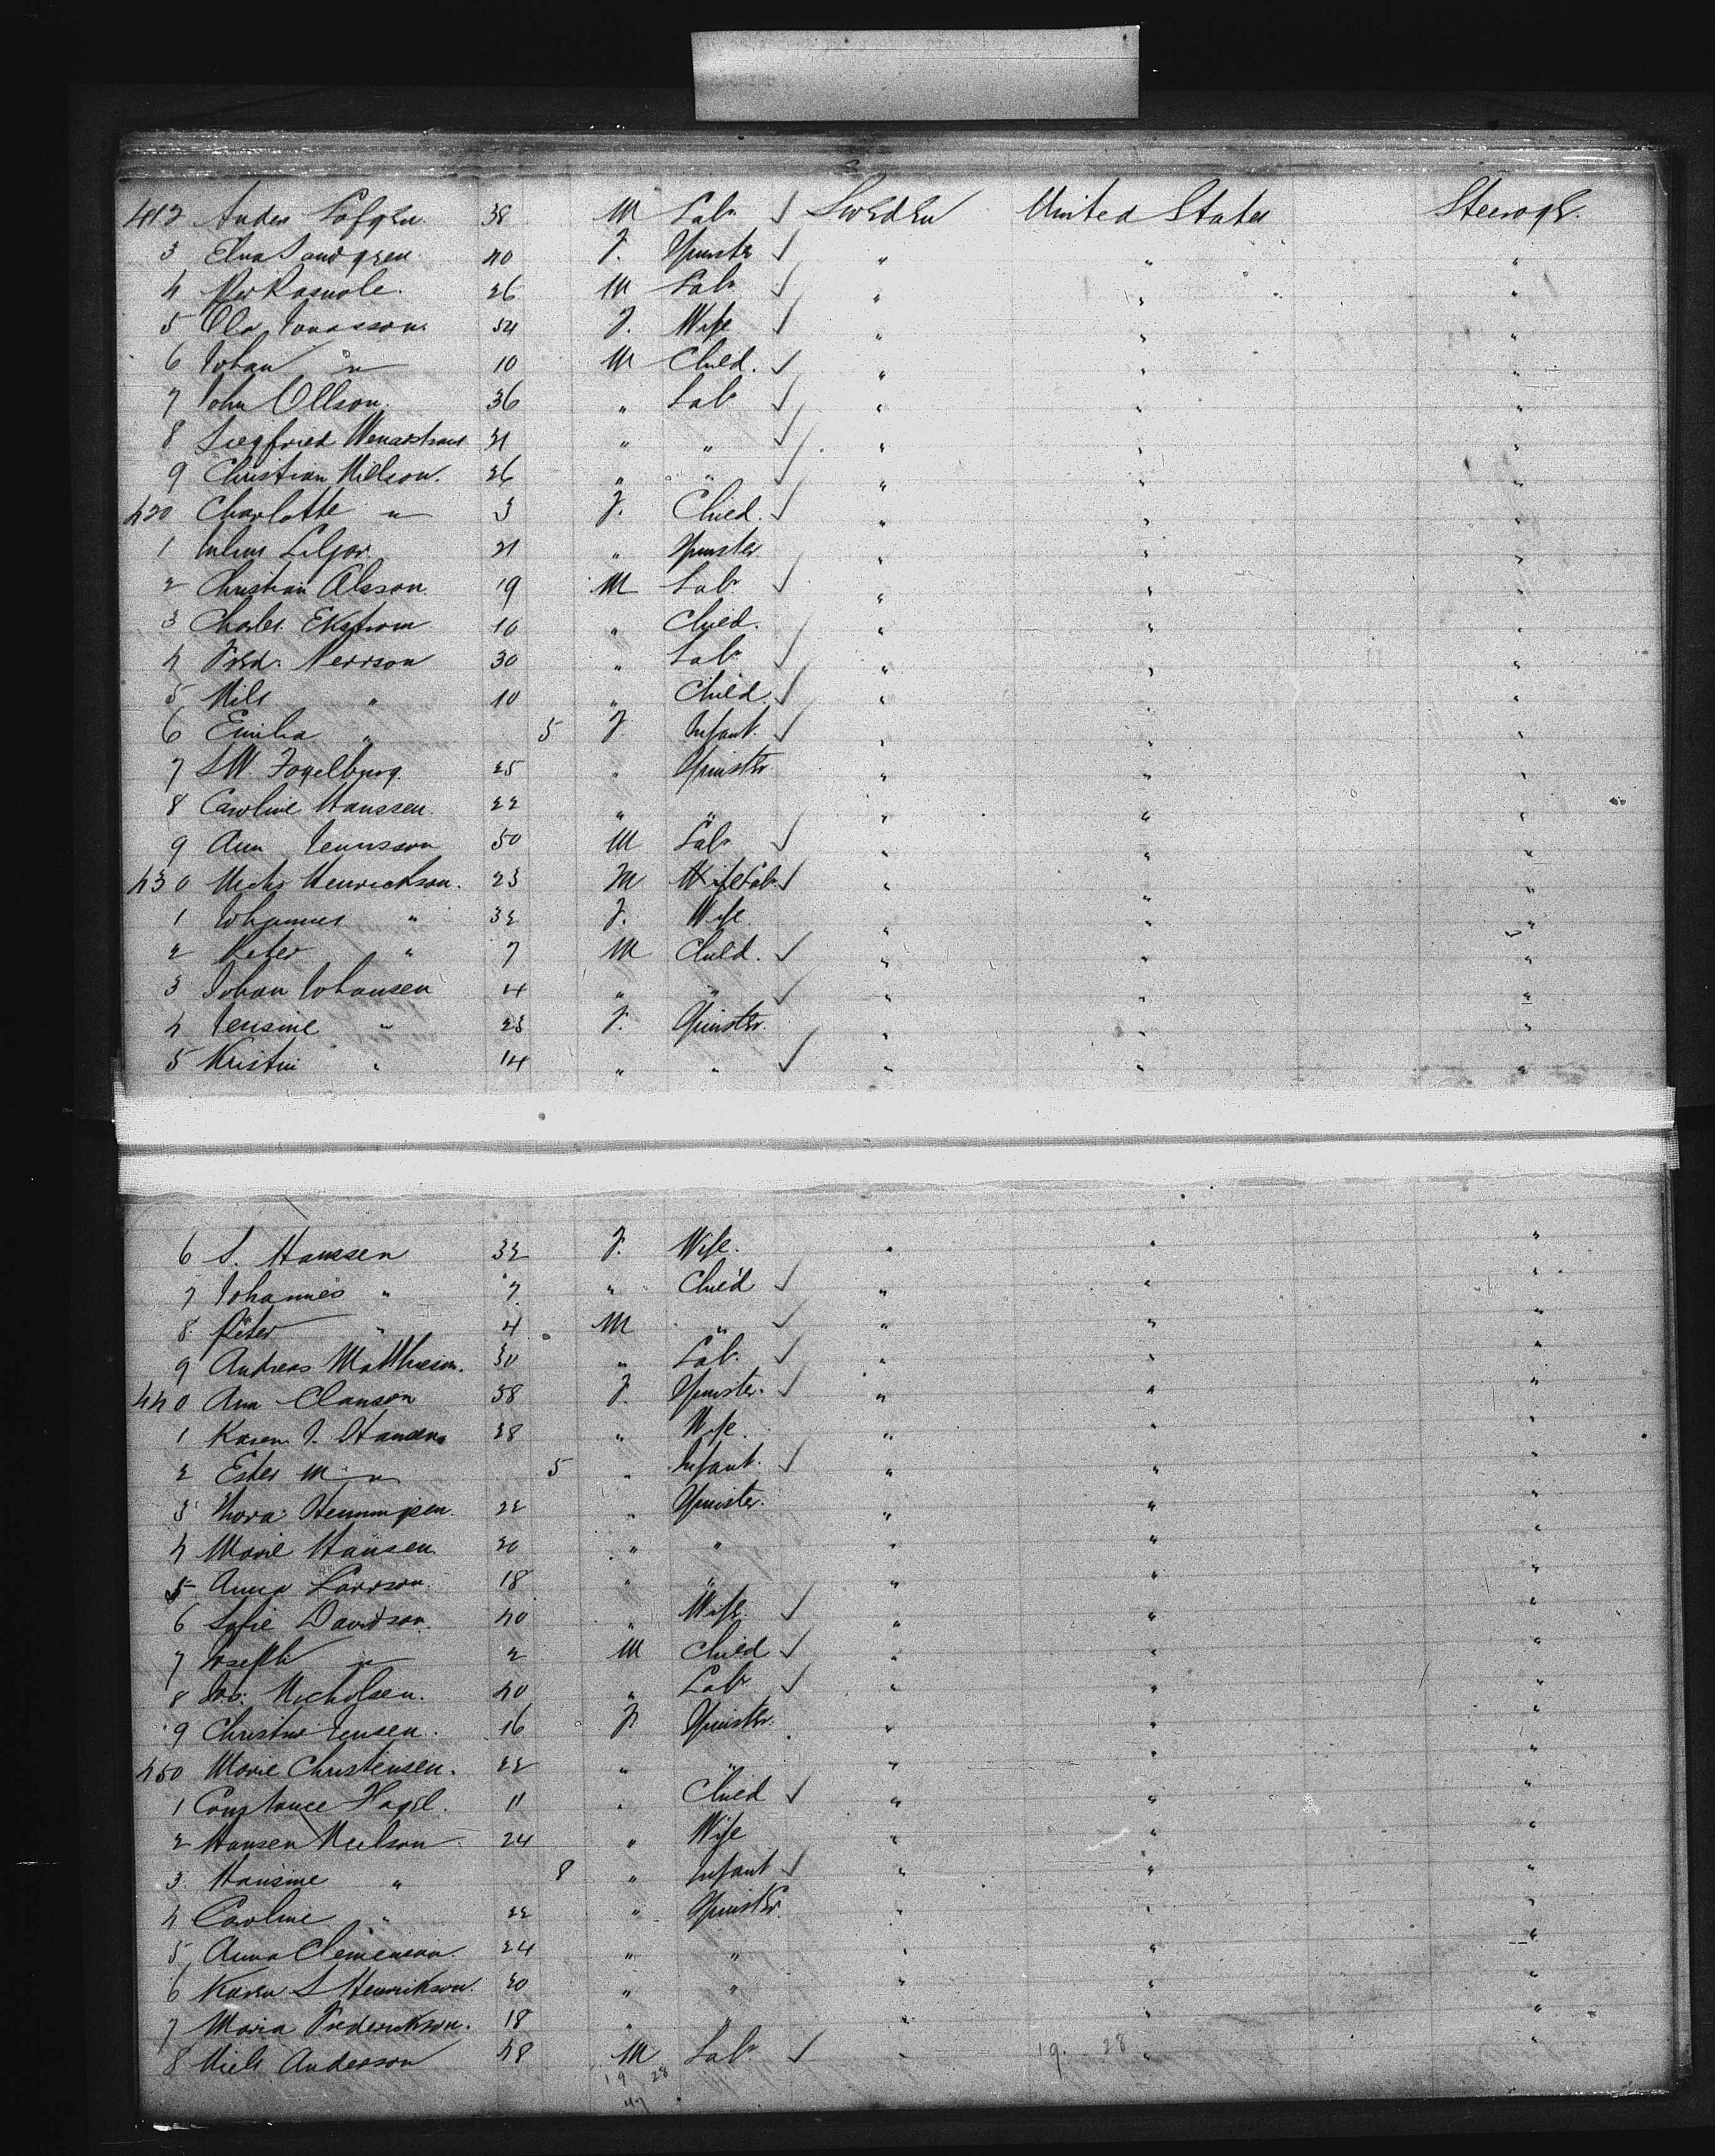 412 Andes Lofgren 38 M Labr ✓ Sweden United States Steerage.
3 Elna Sandgren 40 F. Spinster ✓ " " "
4 Per 26 M Labr ✓ " " "
5 Ola Jonasson 54 F. Wife ✓ " " "
6 Johan " 10 M Child. ✓ " " "
7 John Ollson. 36 " Labr ✓ " " "
8 Siegfried 21 " " ✓ " " "
9 Christian Nilson. 26 " " ✓ " " "
420 Charlotte " 3 F. Child. ✓ " " "
1 21 " Spinster. " " "
2 Christian Olsson. 19 M Labr ✓ " " "
3 Charles Ekstrom 10 " Child. " " "
4 Fred. Nerrson 30 " Labr ✓ " " "
5 Nils " 10 " Child ✓ " " "
6 Emilia " 5 F Infant. ✓ " " "
7 S W. Fogelburg. 25 " Spinster " " "
8 Caroline Hanssen. 22 " " " " "
9 Ann 50 M Labr ✓ " " "
430 Henrickson. 23 M Labr ✓ " " "
1 Johannes " 32 F. Wife " " "
2 Peter " 7 M Child. ✓ " " "
3 Johan Johansen 4 " " ✓ " " "
4 Jensine " 23 F. Spinster. " " "
5 Kristin " 14 " " ✓ " " "
6 S. Hanssen 32 F. Wife. " " "
7 Johannes " 7 " Child ✓ " " "
8. Peter " 4 M " ✓ " " "
9 Andreas 30 " Lab. ✓ " " "
440 Ann Clauson 58 F. Spinster. ✓ " " "
1 Karen J. Hansen 28 " Wife. " " "
2 Ester M " 5 " Infant. ✓ " " "
3 Thora 22 " Spinster. " " "
4 Marie Hansen 20 " " " " "
5 Anna Larrson. 18 " " " " "
6 Sofie Davidson. 40 " Wife. ✓ " " "
7 Joseph " 2 M Child ✓ " " "
8 Nicholsen. 40 " Labr ✓ " " "
9 Christine Jensen. 16 F Spinster. " " "
450 Marie Christensen. 22 " " " " "
1 Constance Hagel. 11 " Child ✓ " " "
2 Hansen Neelson 24 " Wife " " "
3. Hansine " 8 " Infant ✓ " " "
4 Caroline " 22 " Spinster. " " "
5 Anna Clemenson. 24 " " " " "
6 Karen S Henrikson. 20 " " " " "
7 Maria Frederickson. 18 " " " " "
8 Niels Anderson 48 M Labr ✓ " 19. 28 " "
19 28
47